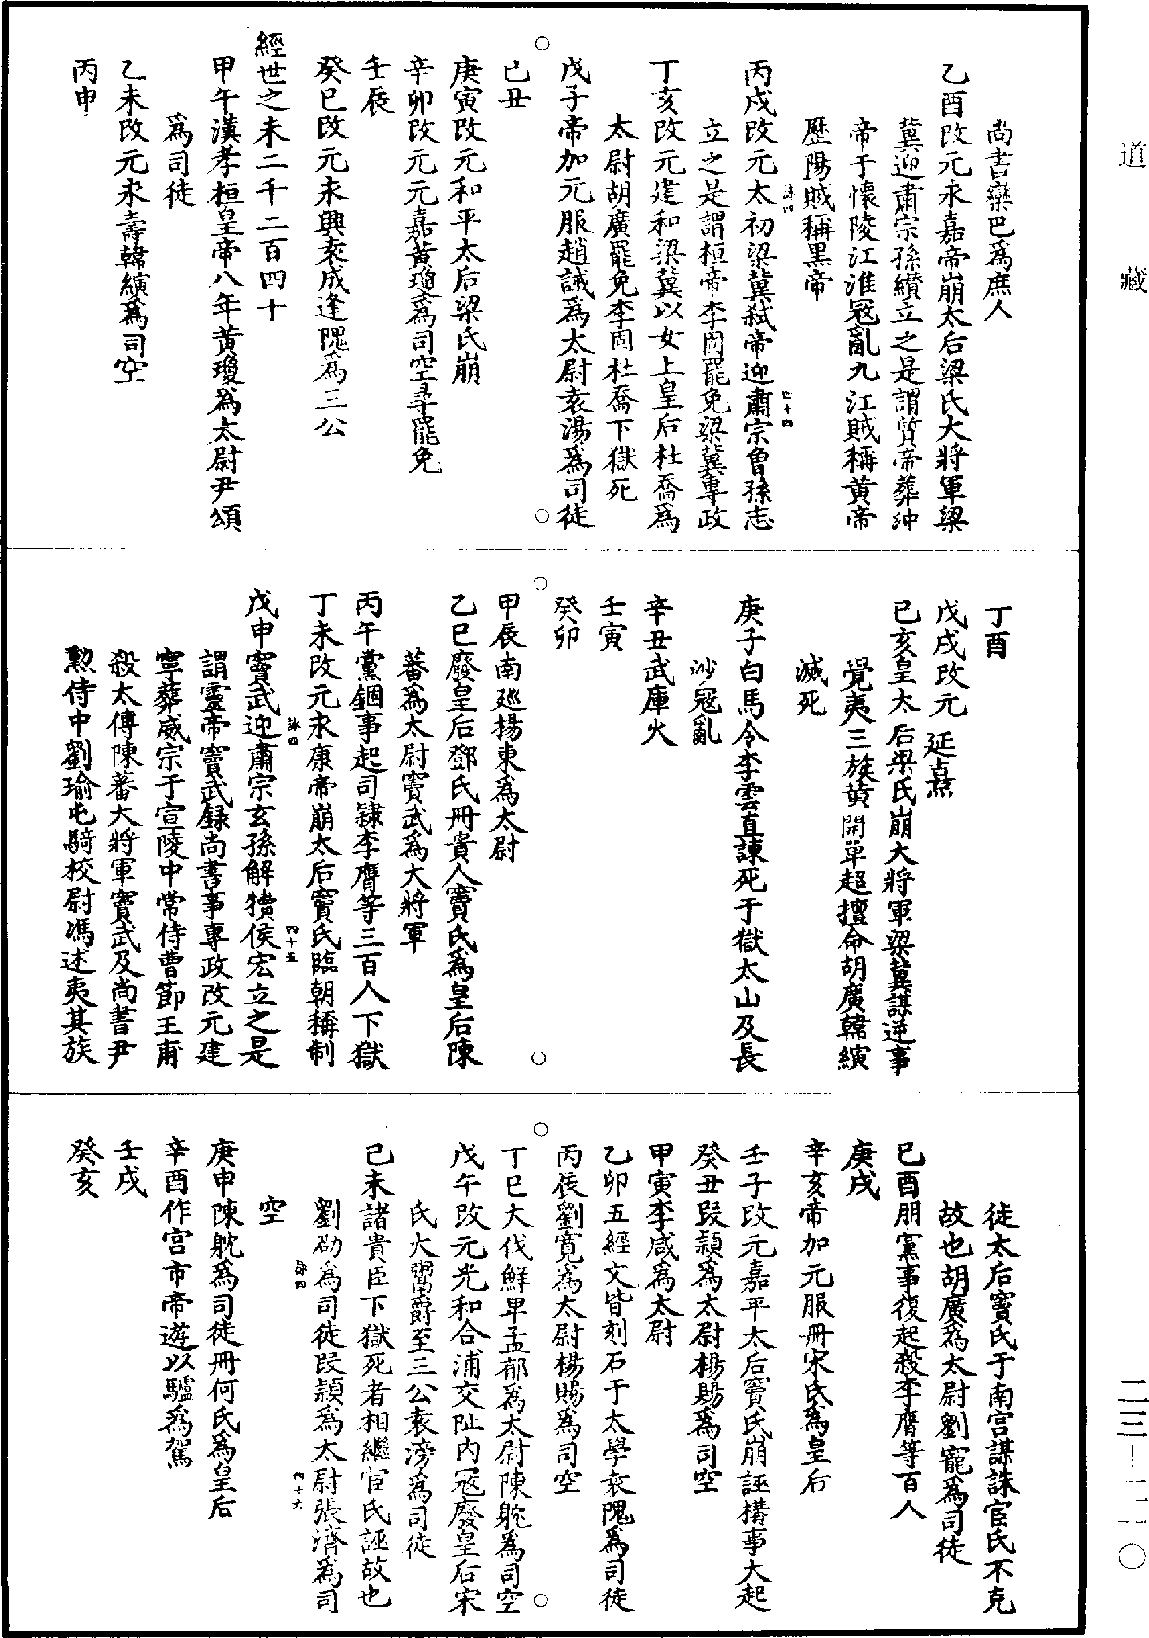 尚書欒巴爲庶人
乙酉改元永嘉帝崩太后梁氏大將軍梁
冀迎肅宗孫纘立之是謂質帝葬沖
帝于懷陵江淮寇亂九江賊稱黃帝
歷陽賊稱黑帝
丙戌改元太初梁冀弑帝迎肅宗曾孫志
立之是謂桓帝李固罷免梁冀專政
丁亥改元建和梁冀以女上皇后杜喬爲
太尉胡廣罷免李固杜喬下獄死
戊子帝加元服趙誡爲太尉袁湯爲司徒
己丑
庚寅改元和平太后梁氏崩
辛卯改元元嘉黃瓊爲司空尋罷免
壬辰
癸巳改元永興袁成逢隗爲三公
經世之未二千二百四十
甲午漢孝桓皇帝八年黃瓊爲太尉尹頌
爲司徒
乙未改元永壽韓縯爲司空
丙申
丁酉
戊戌改元延熹
己亥皇太后梁氏崩大將軍梁冀謀逆事
覺夷三族黃開單超擅命胡廣韓縯
減死
庚子白馬令李雲直諫死于獄太山及長
沙寇亂
辛丑武庫火
壬寅
癸卯
甲辰南巡揚東爲太尉
乙巳廢皇后鄧氏冊貴人竇氏爲皇后陳
蕃爲太尉竇武爲大將軍
丙午黨錮事起司隸李膺等三百人下獄
丁未改元永康帝崩太后竇氏臨朝稱制
戊申竇武迎肅宗玄孫解犢侯宏立之是
謂靈帝竇武錄尚書事專政改元建
寧葬威宗于宣陵中常侍曹節王甫
殺太傅陳蕃大將軍竇武及尚書尹
勲侍中劉瑜屯騎校尉馮述夷其族
徒太后竇氏于南宫謀誅宦氏不克
故也胡廣爲太尉劉寵爲司徒
己酉朋黨事復起殺李膺等百人
庚戌
辛亥帝加元服冊宋氏爲皇后
壬子改元嘉平太后竇氏崩誣搆事大起
癸丑段熲爲太尉楊賜爲司空
甲寅李咸爲太尉
乙卯五經文皆刻石于太學袁隗爲司徒
丙辰劉寬爲太尉楊賜爲司空
丁巳大伐鮮卑孟郁爲太尉陳躭爲司空
戊午改元光和合浦交阯内寇廢皇后宋
氏大鬻爵至三公袁滂爲司徒
己未諸貴臣下獄死者相繼宦氏誣故也
劉劭爲司徒段熲爲太尉張濟爲司
空
庚申陳躭爲司徒冊何氏爲皇后
辛酉作宫市帝遊以驢爲駕
壬戌
癸亥
道藏
二三—二一〇